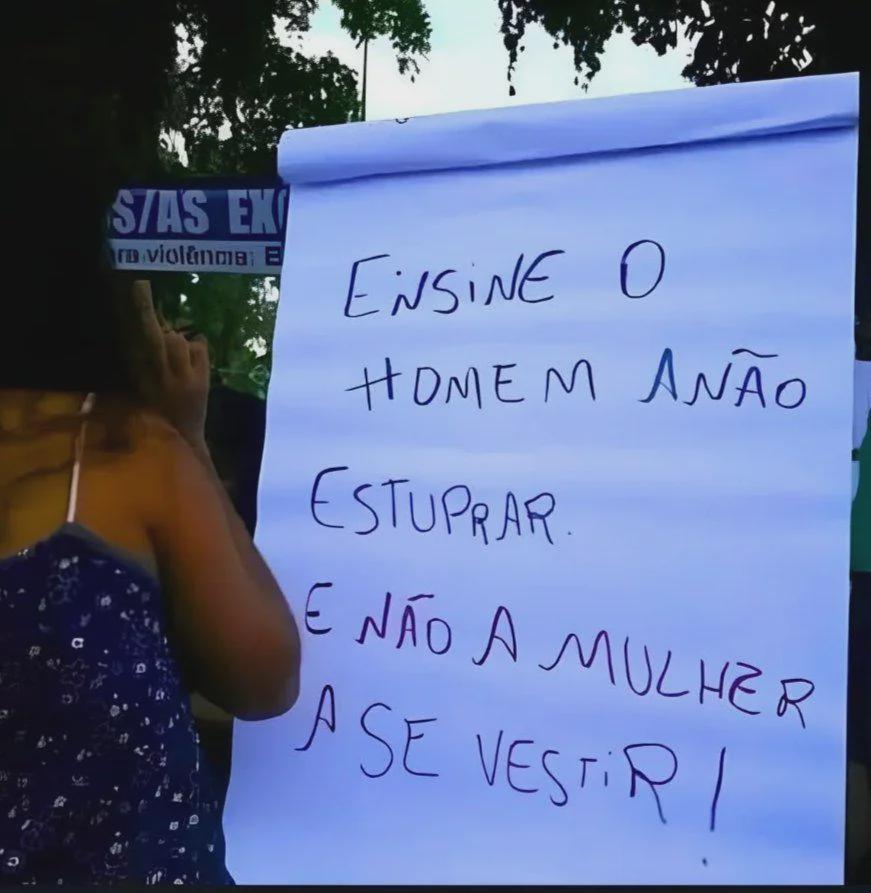 S/AS EX
violência; E
ENSINE O
HOMEM ANÃO
ESTUPRAR.
E NÃO A MULHER
A SE VESTIR!